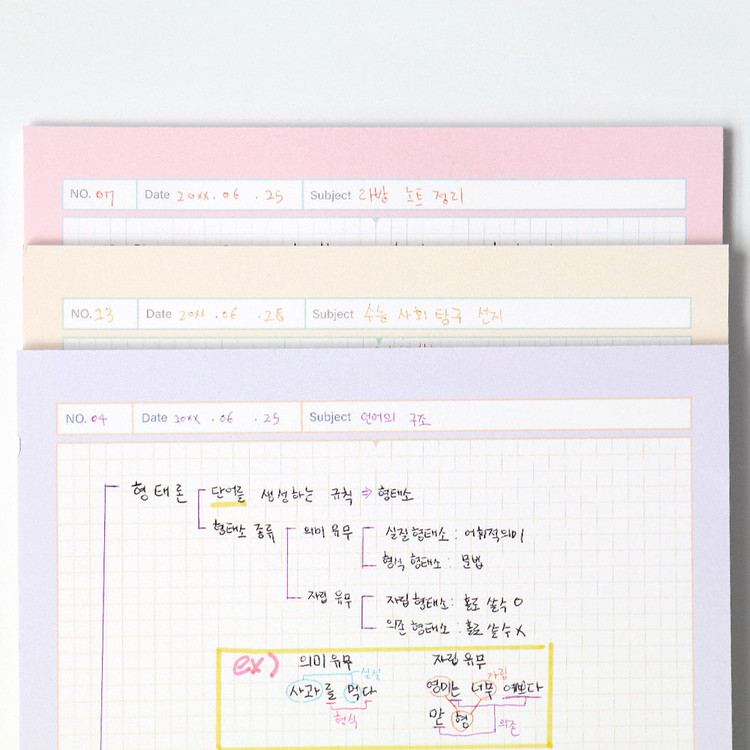 NO. 07 Date 20xx.06.25 Subject 라방 노트 정리
NO. 23 Date 20xx.06.28 Subject 수능 사회 탐구 선지
NO. 04 Date 20xx.06.25 Subject 언어의 구조
형태론 단어를 생성하는 규칙 ⇒ 형태소
형태소 종류 의미 유무 실질 형태소 : 어휘적의미
형식 형태소 : 문법
자립 유무 자립 형태소 : 홀로 쓸수 O
의존 형태소 : 홀로 쓸수 X
ex) 의미 유무 자립 유무
실질 자립
사과를 먹다 영미는 너무 예쁘다
형식 맏형 의존